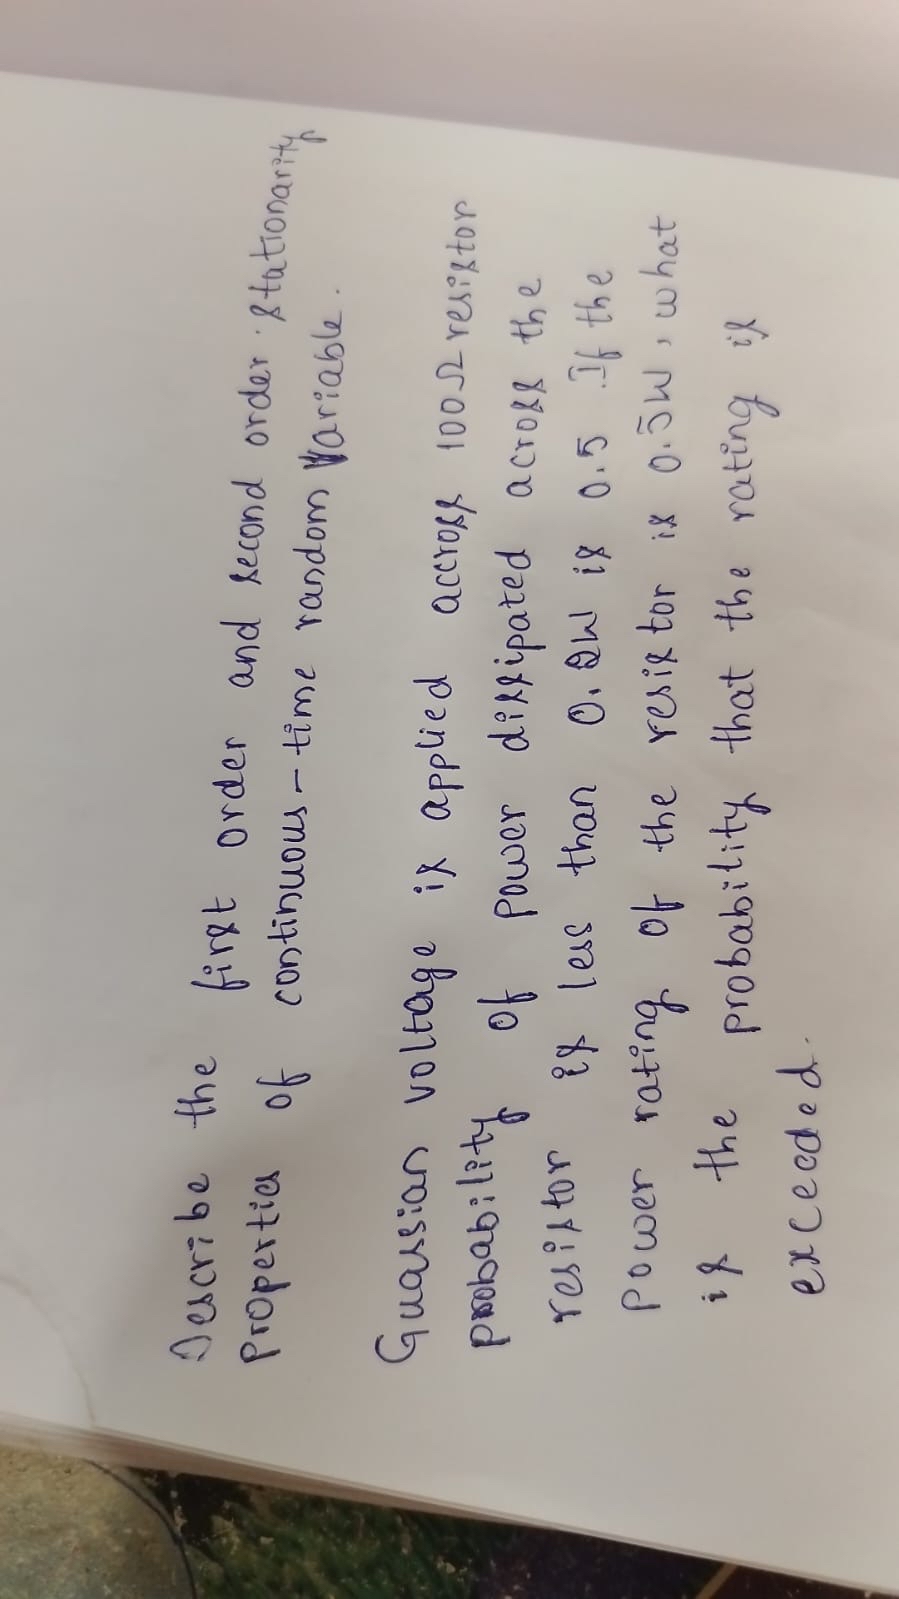 Describe the first order and second order stationarity
properties of continuous-time random Variable.
Guassian voltage is applied accross 100Ω resistor
probability of power dissipated across the
resistor is less than 0.2W is 0.5. If the
power rating of the resistor is 0.5W, what
is the probability that the rating is
exceeded.